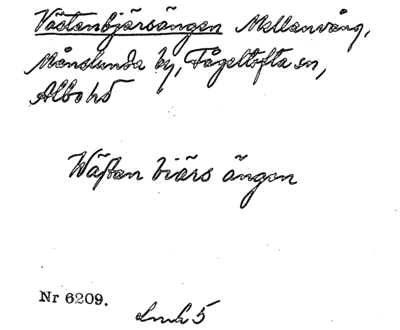 Västenbjärsängen Mellanvång,
Månslunda by, Fågeltofta sn,
Albo hd
Wästen biärs ängen
Nr 6209.